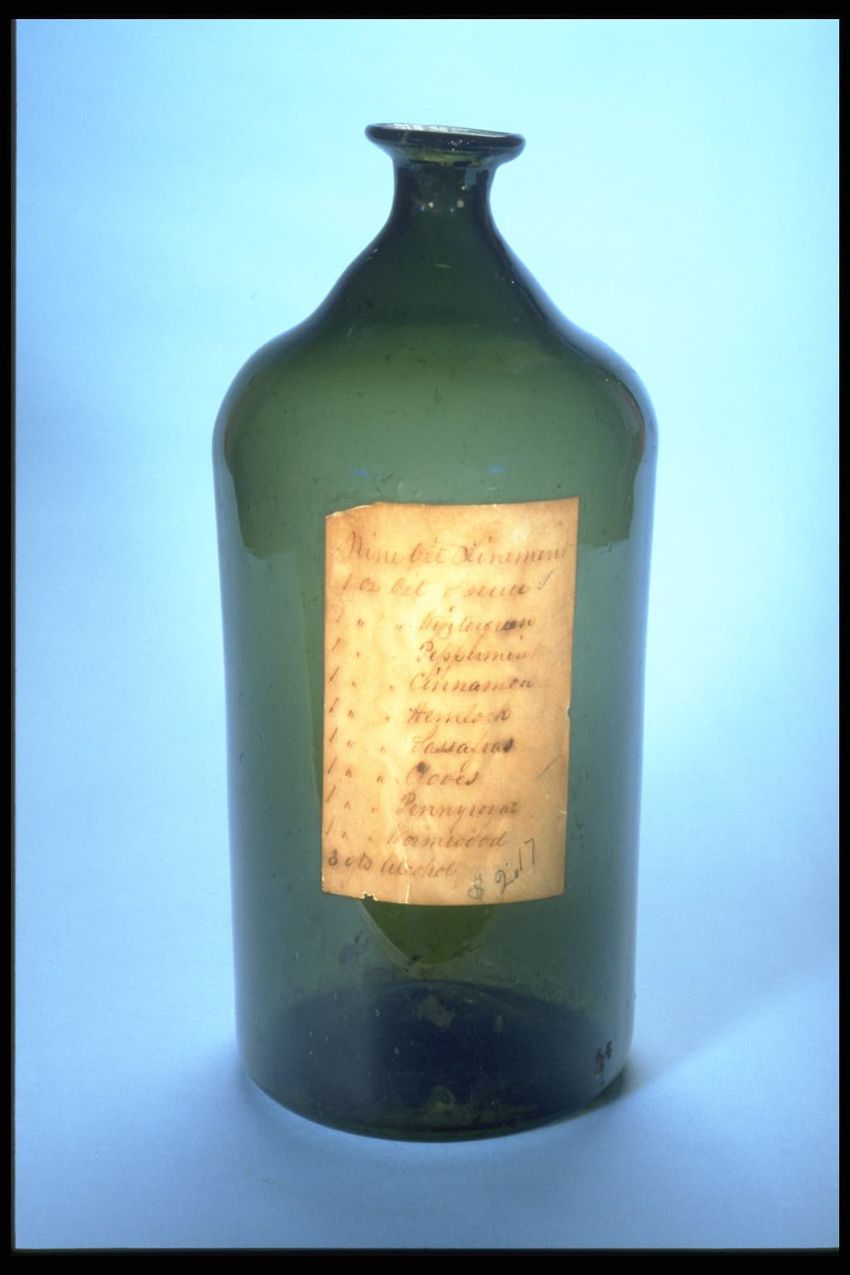 Nine Oil Linement
1 oz Oil
1 " " Wintergreen
1 " " Peppermint
1 " " Cinnamon
1 " " Hemlock
1 " " Sassafras
1 " " Cloves
1 " " Pennyroyal
1 " " Wormwood
3 qts Alcohol